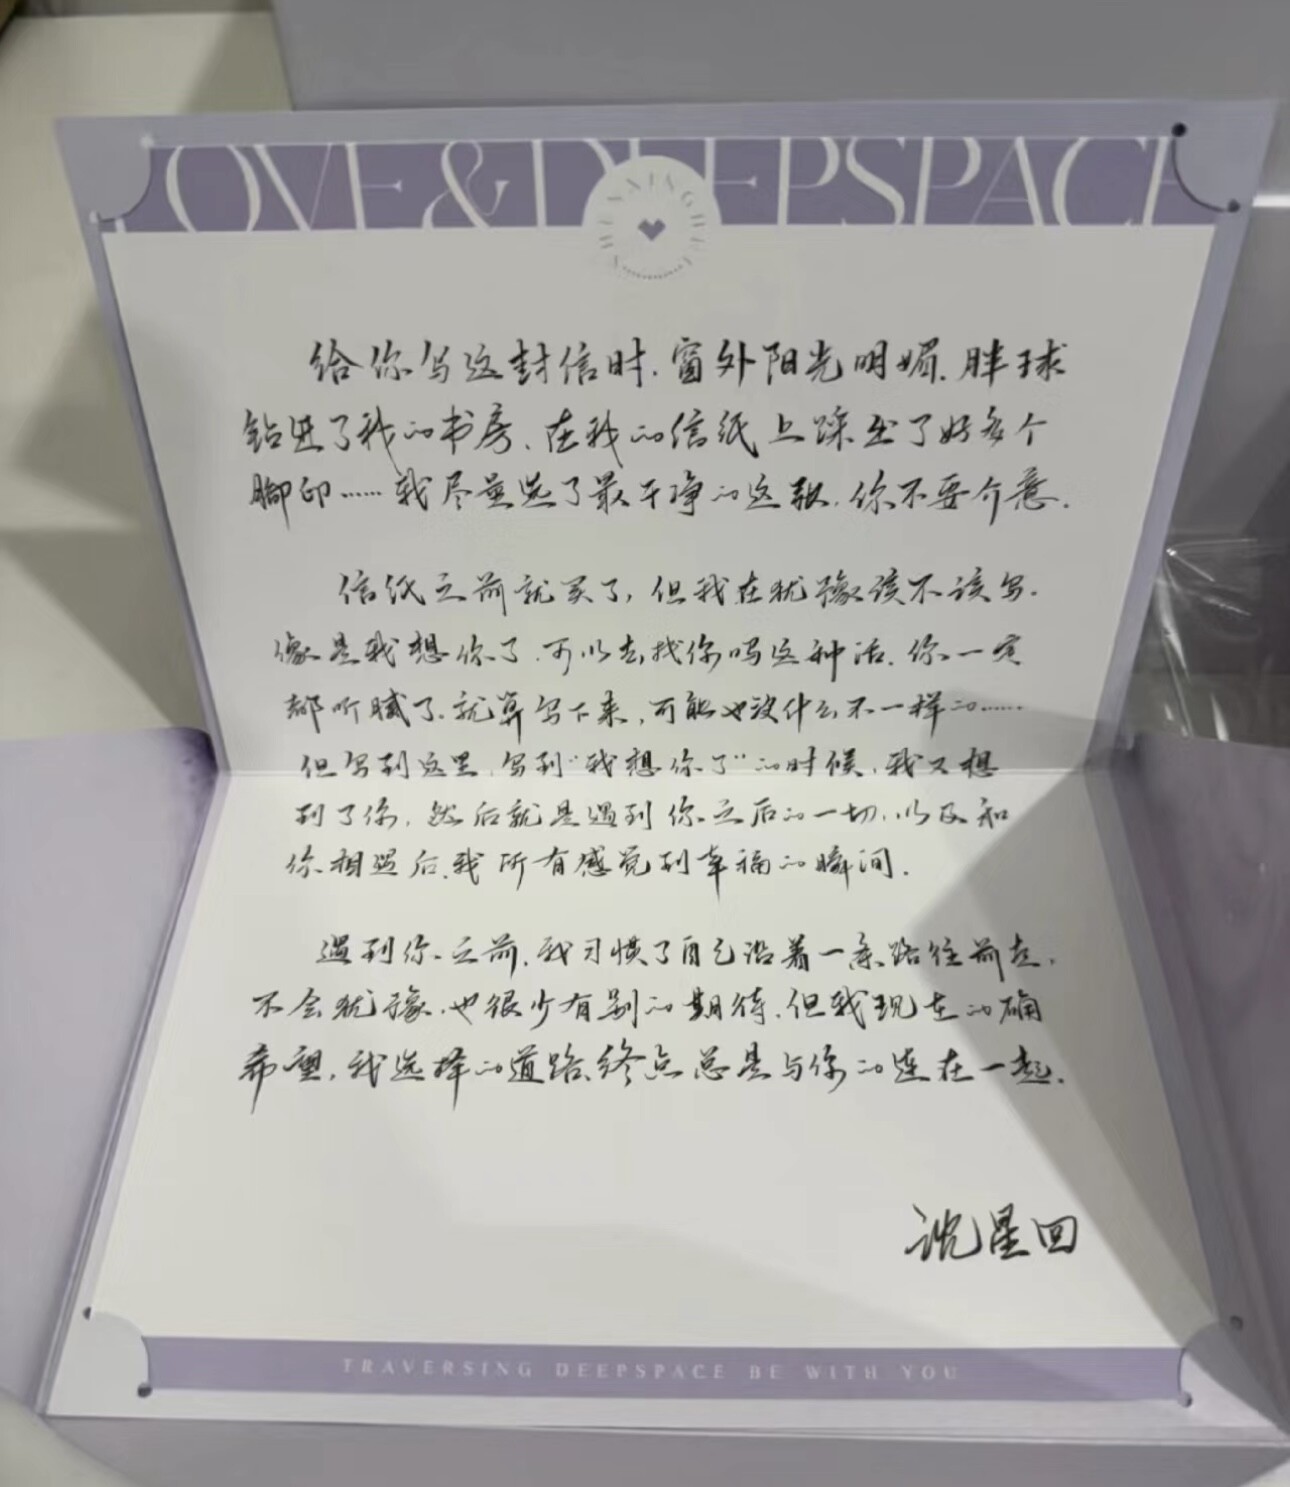 LOVE&DEEPSPACE
SHENXINGHUI
给你写这封信时，窗外阳光明媚，胖球
钻进了我的书房，在我的信纸上踩出了好多个
脚印……我尽量选了最干净的这张，你不要介意。
信纸之前就买了，但我在犹豫该不该写。
像是我想你了，可以去找你吗这种话，你一定
都听腻了，就算写下来，可能也没什么不一样的……
但写到这里，写到“我想你了”的时候，我又想
到了你，然后就是遇到你之后的一切，以及和
你相遇后，我所有感觉到幸福的瞬间。
遇到你之前，我习惯了自己沿着一条路往前走，
不会犹豫，也很少有别的期待，但我现在的确
希望，我选择的道路，终点总是与你的连在一起。
沈星回
TRAVERSING DEEPSPACE BE WITH YOU